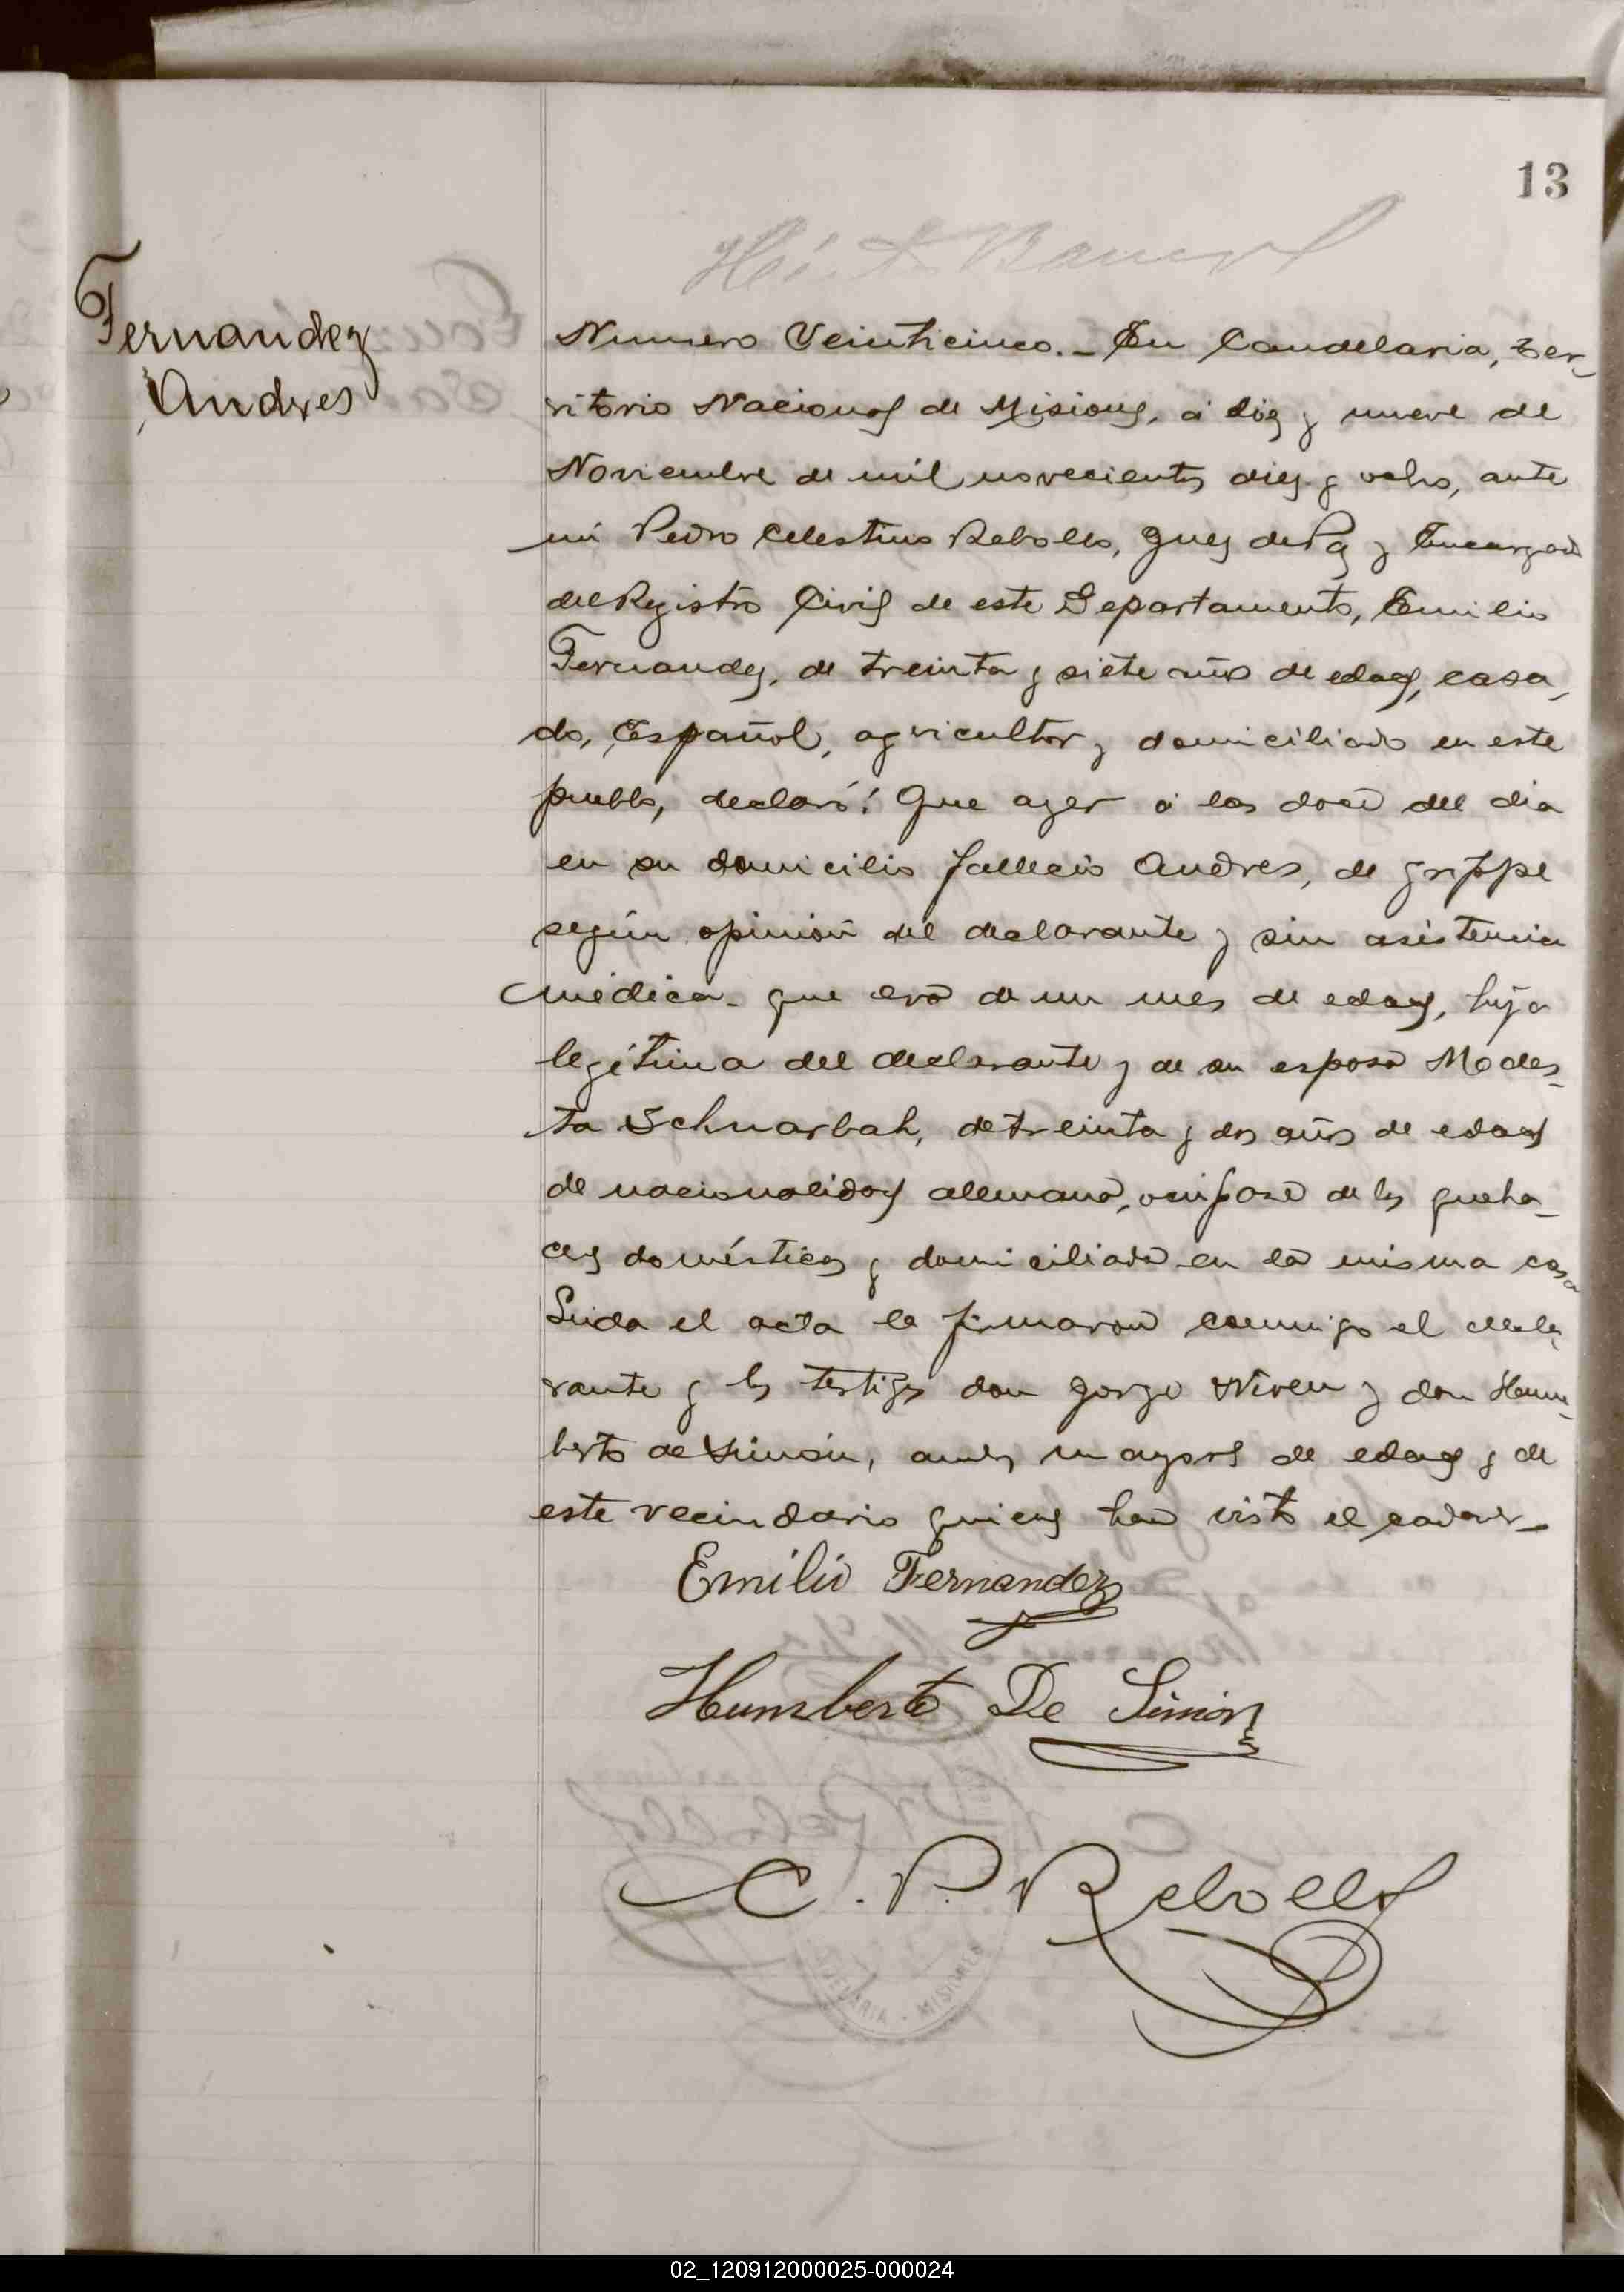 13
Fernandez
Andres
Numero Veinticinco.- En Candelaria, Ter-
ritorio Nacional de Misiones, á diez y nueve de
Noviembre de mil novecientos diez y ocho, ante
mi Pedro Celestino Rebollo, Juez de Paz y Encargado
del Registro Civil de este Departamento, Emilio
Fernandez, de treinta y siete años de edad, casa-
do, Español, agricultor y domiciliado en este
pueblo, declaró: Que ayer á las doce del dia
en su domicilio falleció Andres, de grippe
según opinión del declarante y sin asistencia
médica- que era de un mes de edad, hijo
legítimo del declarante y de su esposa Modes-
ta Schuarbah, de treinta y dos años de edad
de nacionalidad alemana, ocupase de los queha-
ceres domésticos y domiciliada en la misma casa
Leida el acta la firmaron conmigo el decla-
rante y los testigos don Jorge Niven y don Hum-
berto de Simón, ambos mayores de edad y de
este vecindario quienes han visto el cadaver-
Emilio Fernandez
Humberto De Simon
C. P. Rebollo
02_120912000025-000024